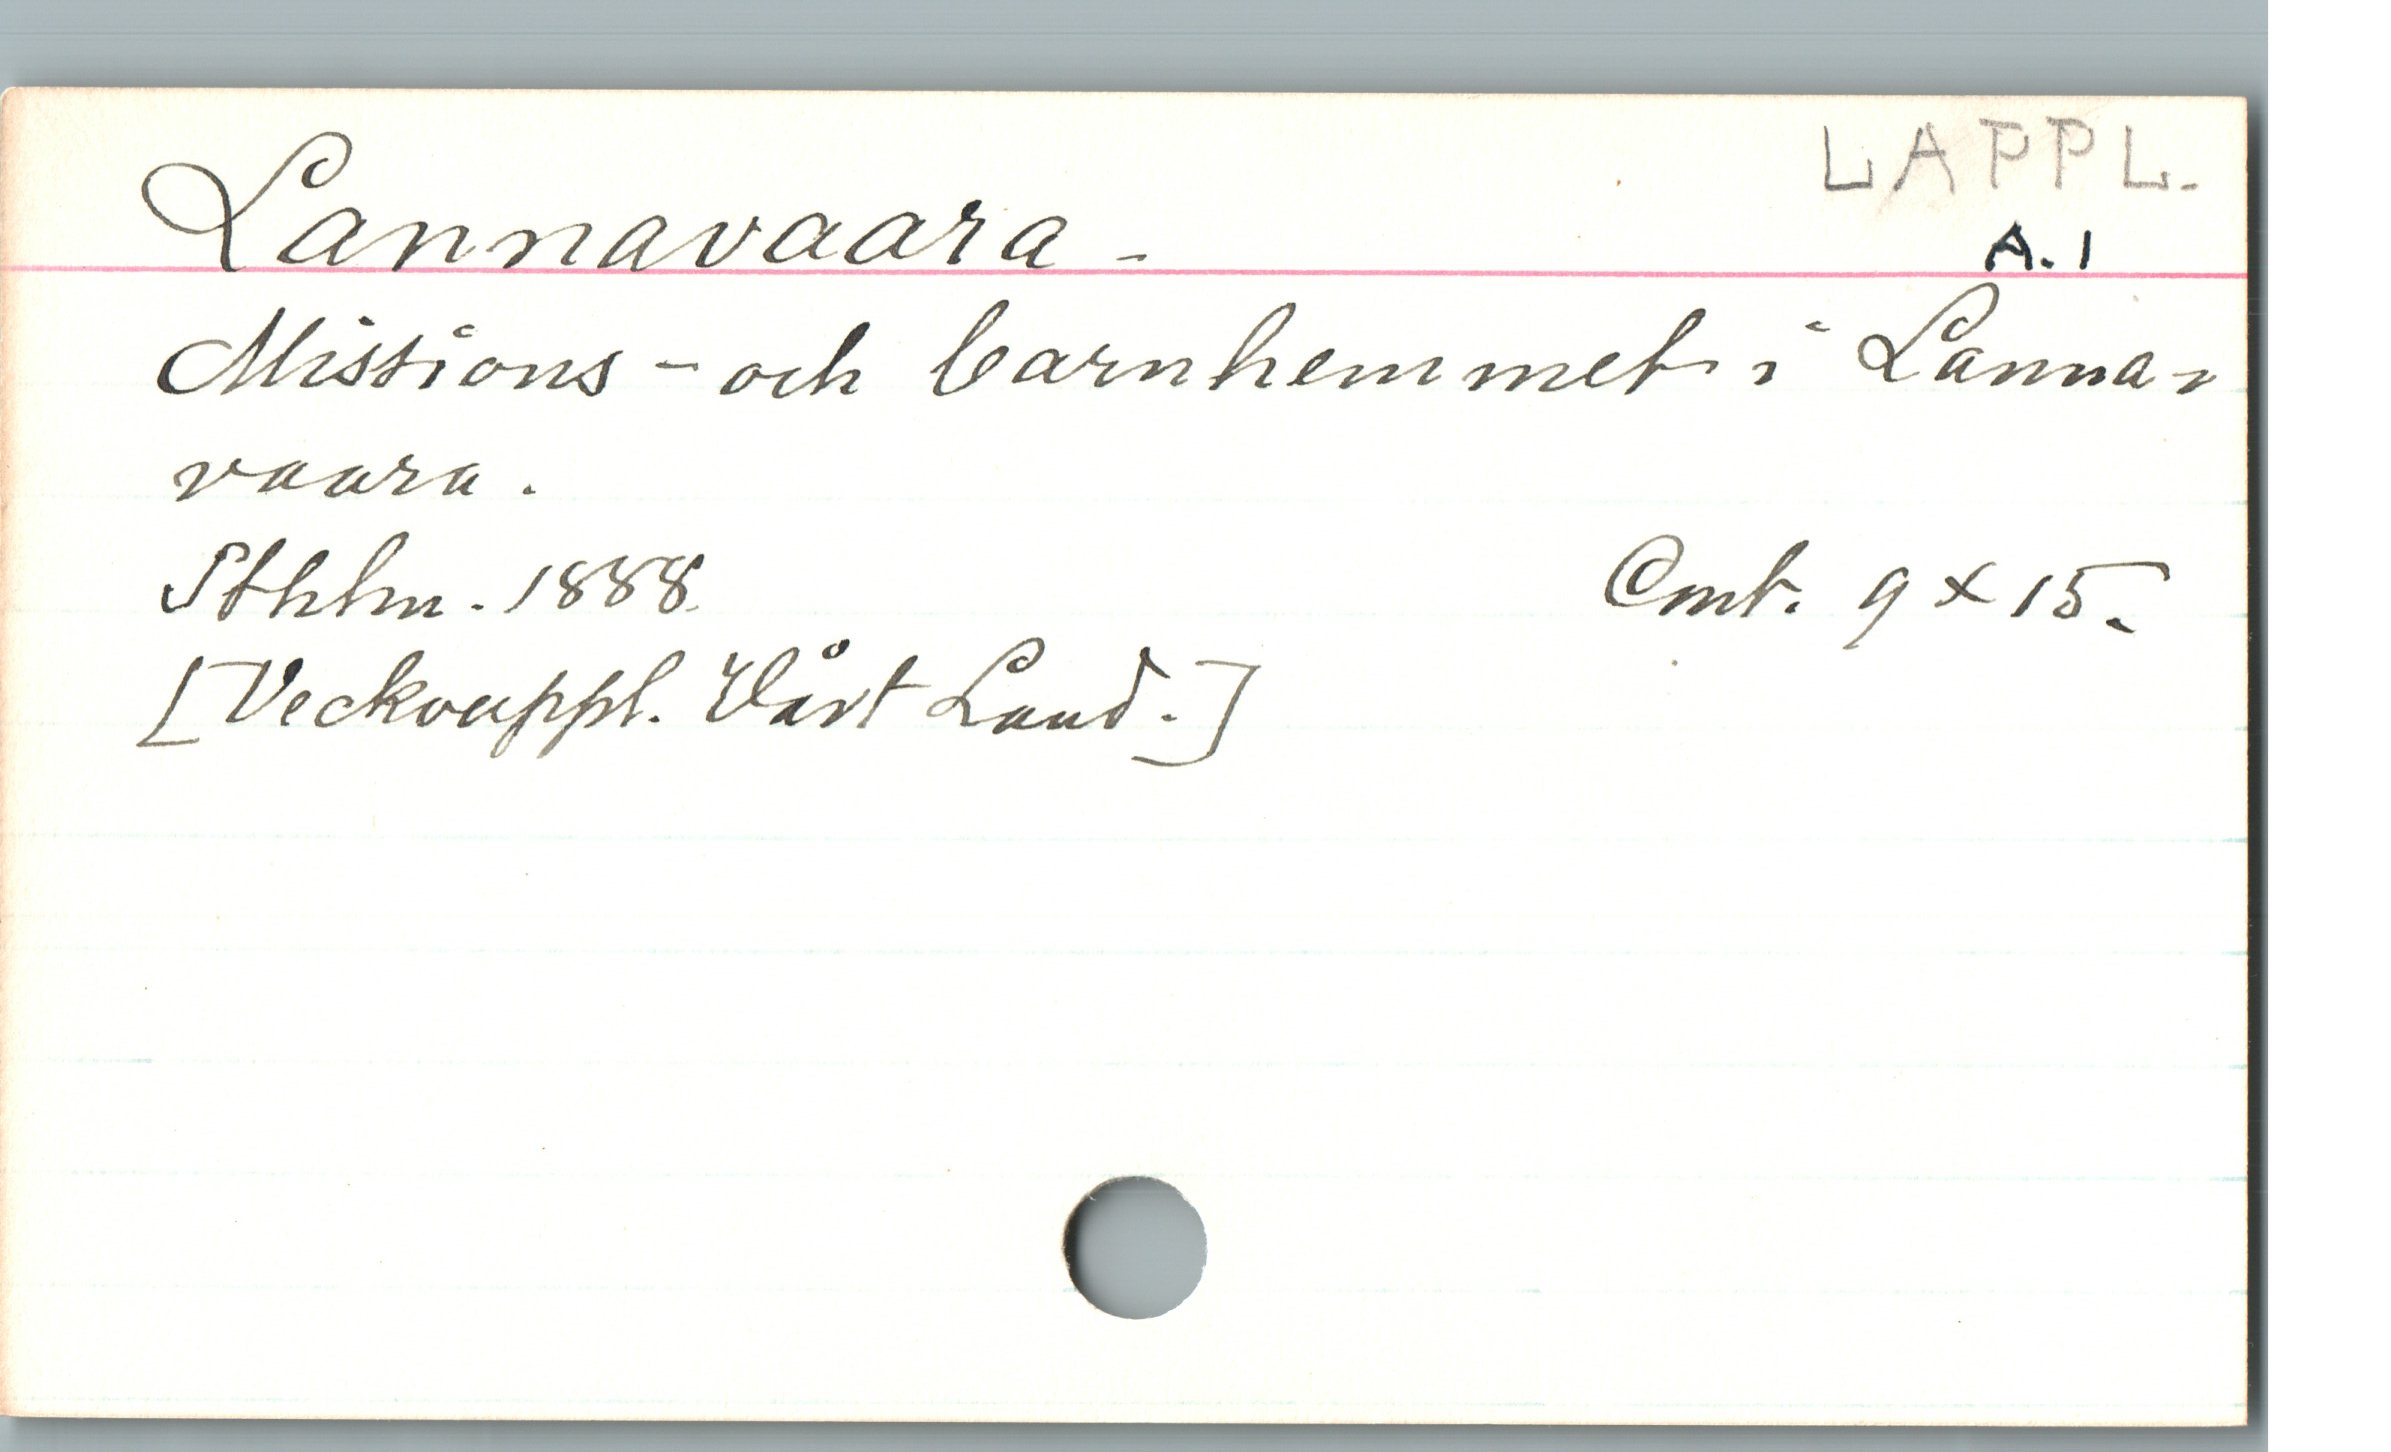 LAPPL.
Lannavaara -
A. 1
Missions - och barnhemmet i Lanna-
vaara.
Sthlm. 1888.
Cmt. 9 x 15.
[Veckouppl. Vårt Land.]